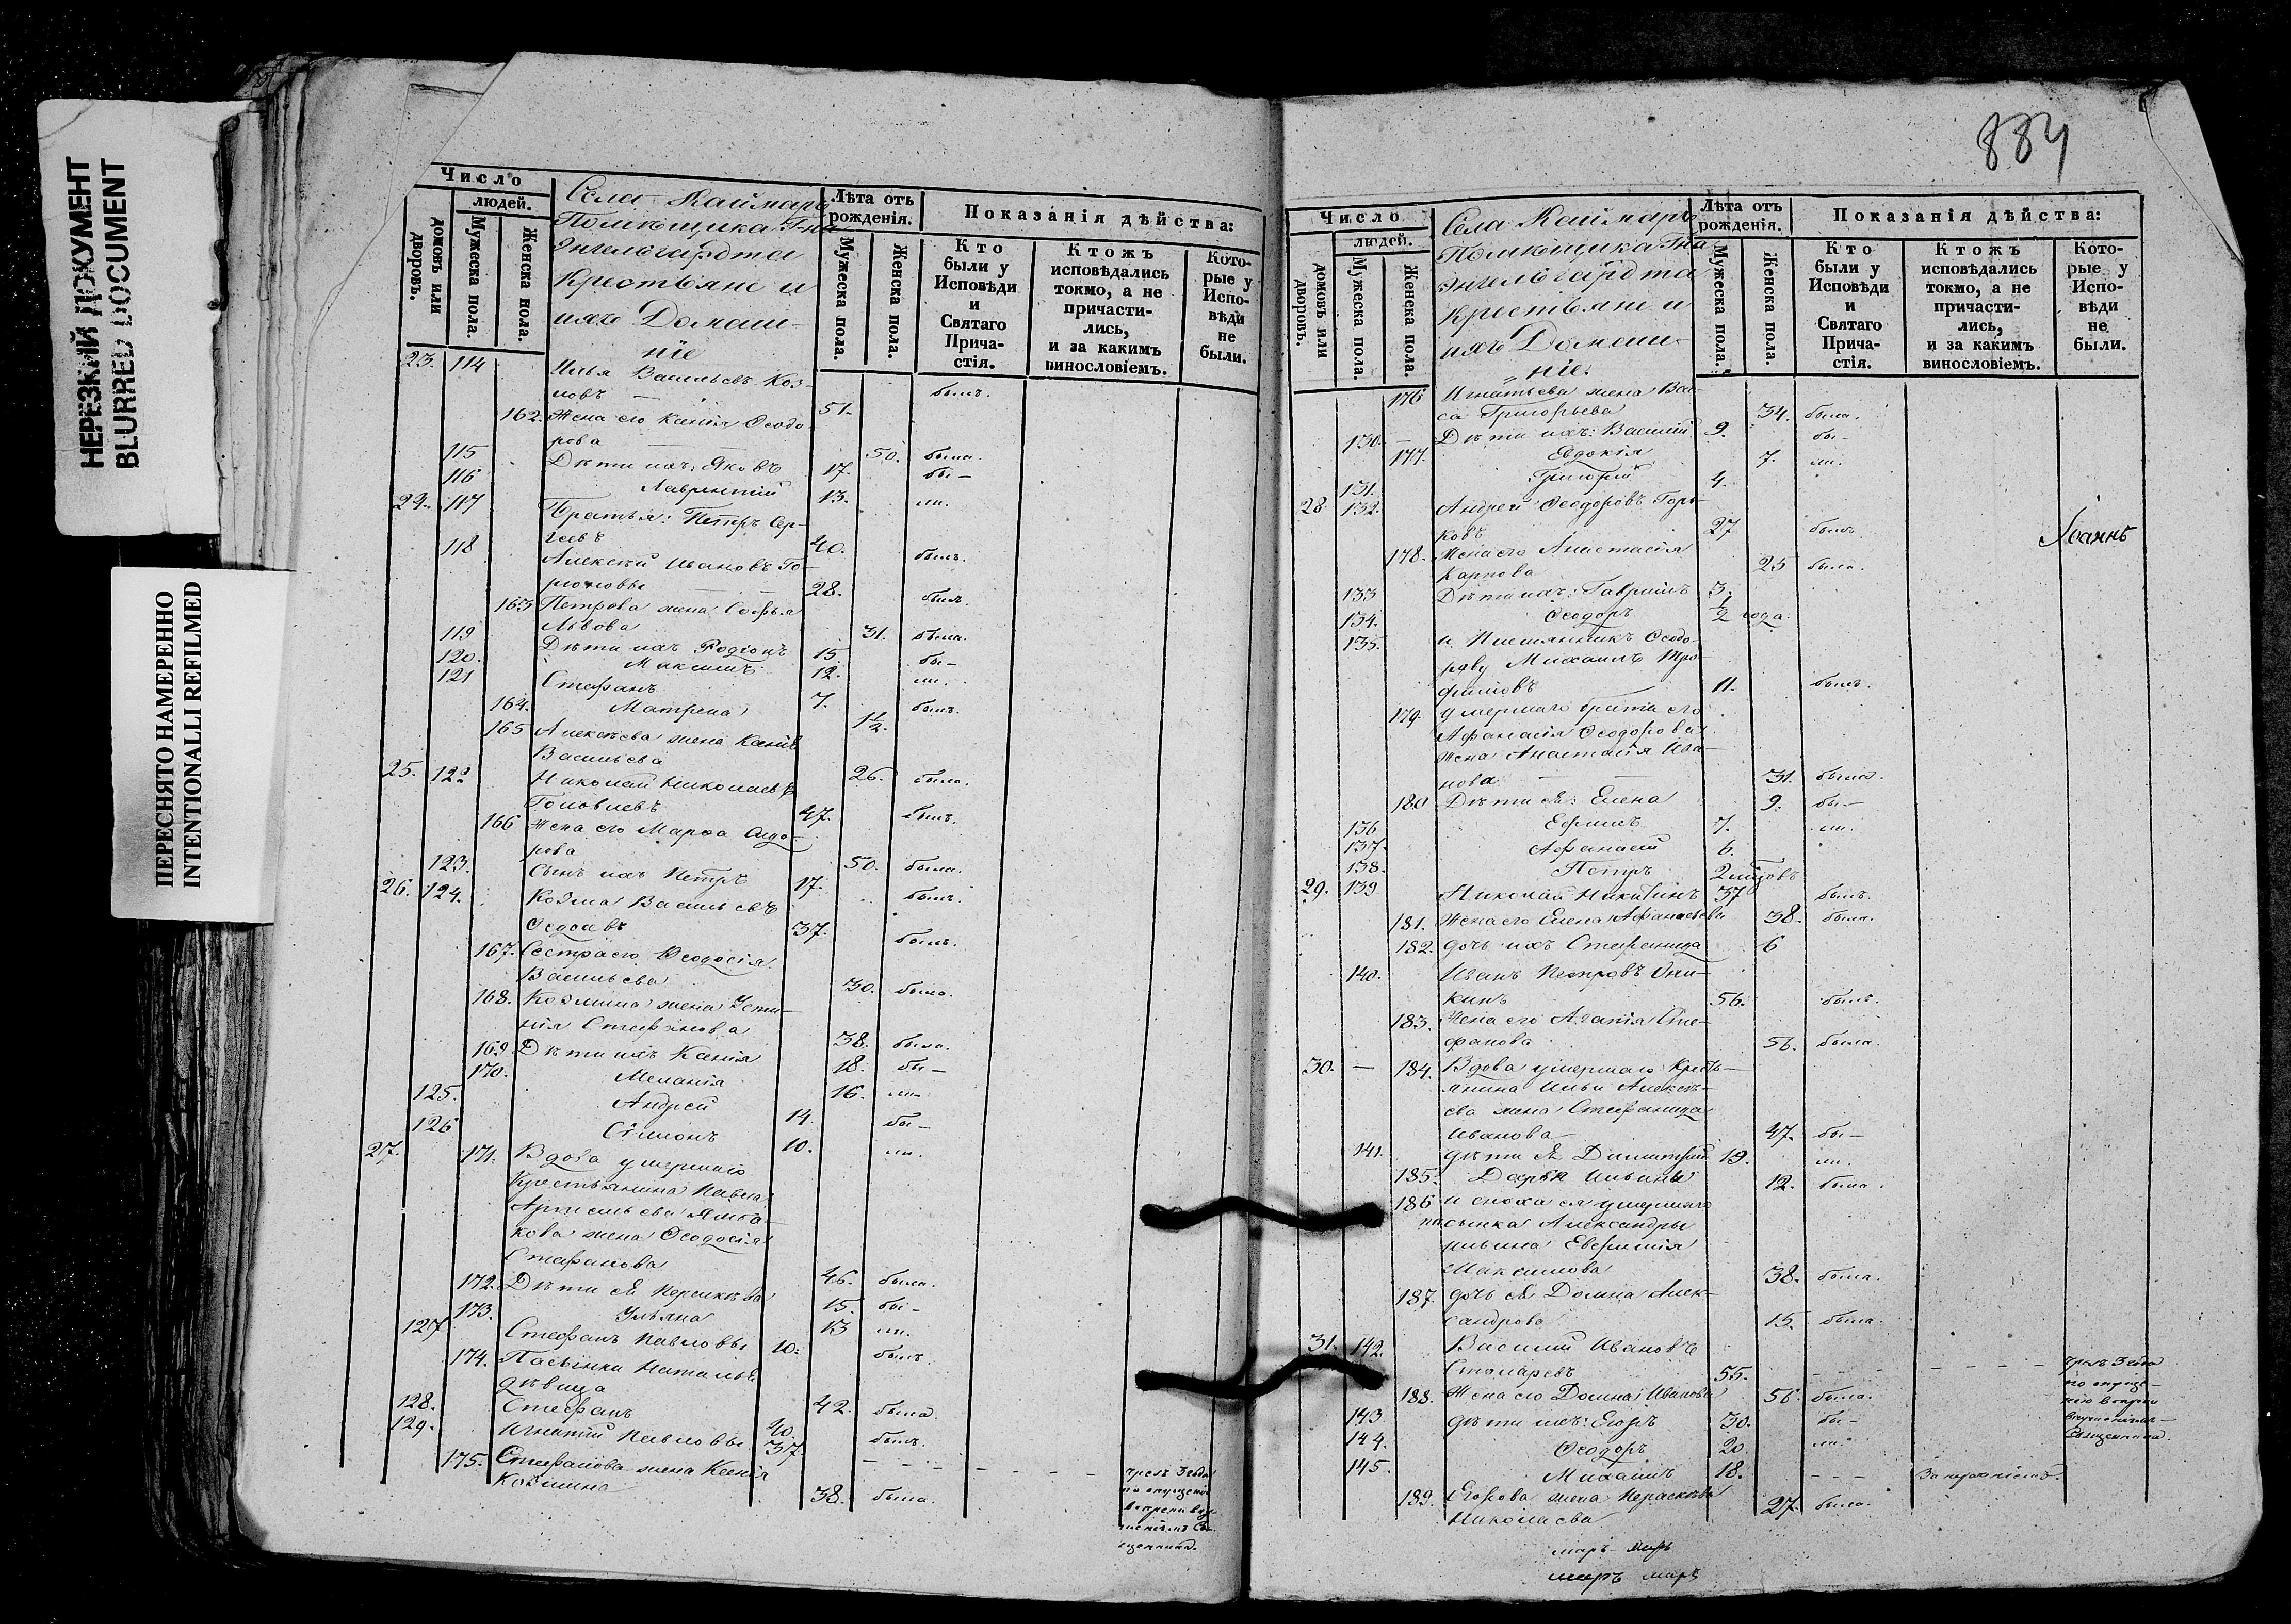 884
НЕРЕЗКИЙ ДОКУМЕНТ
BLURRED DOCUMENT
ПЕРЕСНЯТО НАМЕРЕННО
INTENTIONALLI REFILMED
Число
людей.
домовъ или дворовъ.
Мужеска пола.
Женска пола.
Села Каймаръ
Помѣщика Гна
Энгельгардта
Крестьяне и
ихъ Домаш-
ніе
Лѣта отъ рожденія.
Мужеска пола.
Женска пола.
Показанія дѣйства:
Кто были у Исповѣди и Святаго Прича-стія.
Ктожъ исповѣдались токмо, а не причасти-лись, и за какимъ винословіемъ.
Кото-рые у Испо-вѣди не были.
23. 114 Илья Васильевъ Коз-
ловъ 51. былъ.
162. Жена его Ксенія Ѳеодо-
рова 50. была.
115 Дѣти ихъ: Яковъ 17. бы-
116 Лаврентій 13. ли.
24. 117 Братья: Петръ Сер-
геевъ 40. былъ.
118 Алексѣй Ивановъ
28. былъ.
163 Петрова жена Софья
Львова 31. была.
119 Дѣти ихъ Родіонъ 15 бы-
120. Максимъ 12. ли.
121 Стефанъ 7. былъ.
164. Матрена 1½.
165 Алексѣева жена Ксенія
Васильева 26. была.
25. 122 Николай Николаевъ
Головлевъ 47. былъ.
166 Жена его Марѳа
рова 50. была.
123. Сынъ ихъ Петръ 17. былъ.
26. 124. Козма Васильевъ
37. былъ.
167. Сестра его Ѳеодосія
Васильева 30. была.
168. Козмина жена Усти-
нія Стефанова 38. была.
169 Дѣти ихъ Ксенія 18. бы-
170. Меланія 16. ли.
125. Андрей 14. бы-
126 Симонъ 10. ли.
27. 171. Вдова умершаго
Крестьянина Павла
Артемьева
кова жена Ѳеодосія
Стефанова 46. была.
172. Дѣти ея Перскѣва 15. бы-
173. Ульяна 13 ли.
127 Стефанъ Павловы 10. былъ.
174. Пасынки Наталья
дѣвица 42. была.
128. Стефанъ 40. былъ.
129. Игнатій Павловы 37. - - - -
175. Стефанова жена Ксенія
Козмина 38. была.
Число
людей.
домовъ или дворовъ.
Мужеска пола.
Женска пола.
Села Каймаръ
Помѣщика Гна
Энгельгардта
Крестьяне и
ихъ Домаш-
ніе.
Лѣта отъ рожденія.
Мужеска пола.
Женска пола.
Показанія дѣйства:
Кто были у Исповѣди и Святаго Прича-стія.
Ктожъ исповѣдались токмо, а не причасти-лись, и за какимъ винословіемъ.
Кото-рые у Испо-вѣди не были.
176 Игнатьева жена Вас-
са Григорьева 34. была.
130. Дѣти ихъ: Василій 9. бы-
177. Евдокія 7. ли.
131. Григорій 4.
28 132. Андрей Ѳеодоровъ Горь-
ковъ 27 былъ
Іоаннъ
178. Жена его Анастасія
Карпова 25 была.
133 Дѣти ихъ: Гавріилъ 3.
134. Ѳеодоръ ½ года
135. и Племянникъ Ѳеодо-
рову Михаилъ Тро-
фимовъ 11. былъ.
179. умершаго брата его
Афанасія Ѳеодорова
Жена Анастасія Ива-
нова 31. была.
180 Дѣти ея: Елена 9. бы-
136 Ефимъ 7. ли.
137. Афанасій 6.
138. Петръ 2
29. 139 Николай Никитинъ 37 былъ.
181. Жена его Елена Афанасьева 38. была.
182. дочь ихъ Стефанида 6
140. Иванъ Петровъ
кинъ 56. былъ.
183. Жена его Агапія Сте-
фанова 56. была.
30. — 184. Вдова умершаго Кресть-
янина Ильи Алексѣ-
ева жена Стефанида
Иванова 47. бы-
141. дѣти ея Димитрій 19. ли.
185. Дарья Ильины 12. была.
186 и сноха ея умершаго
пасынка Александра
Ильина Евфимія
Максимова 38. была.
187. дочь ея Домна Алек-
сандрова 15. была.
31. 142. Василій Ивановъ
Столяревъ 55. - - - -
188. Жена его Домна Иванова 56. была.
143 дѣти ихъ: Егоръ 30. бы-
144. Ѳеодоръ 20. ли.
145. Михаилъ 18. - - -
189. Егорова жена Параскева
Николаева 27. была.